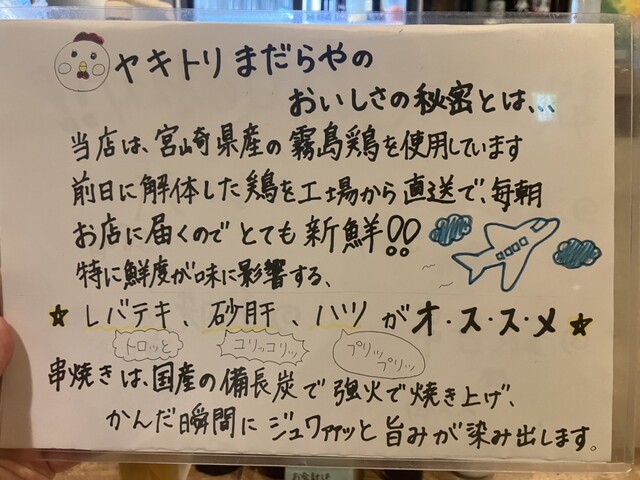 ヤキトリまだらやの
おいしさの秘密とは、、、
当店は、宮崎県産の霧島鶏を使用しています
前日に解体した鶏を工場から直送で、毎朝
お店に届くのでとても新鮮!!
特に鮮度が味に影響する、
★レバテキ、砂肝、ハツがオ・ス・ス・メ★
トロッと コリッコリッ プリップリッ
串焼きは、国産の備長炭で強火で焼き上げ、
かんだ瞬間にジュワァァッと旨みが染み出します。